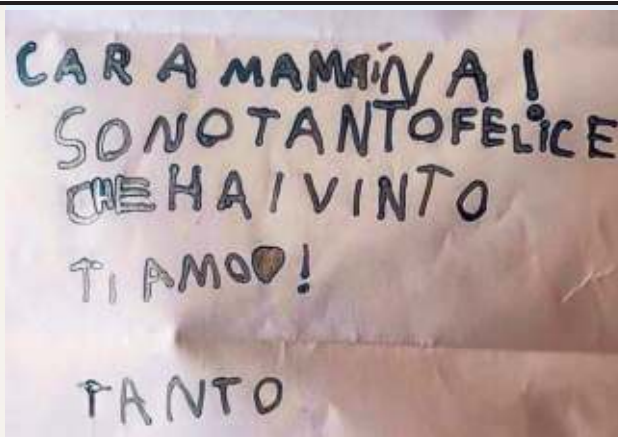 CARA MAMMINA!
SONO TANTO FELICE
CHE HAI VINTO
TI AMO♥!
TANTO